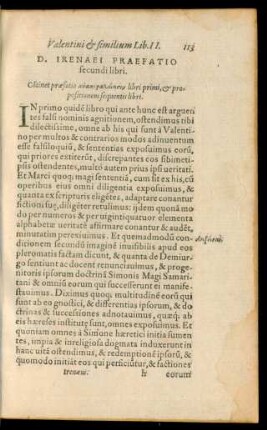 Valentini & similium Lib. II. 113
D. IRENAEI PRAEFATIO
secundi libri.
Continet præfatio libri primi, & pro-
positionem sequentis libri.
IN primo quidẽ libro qui ante hunc est arguen
tes falsi nominis agnitionem, ostendimus tibi
dilectissime, omne ab his qui sunt à Valenti-
no per multos & contrarios modos adinuentum
esse falsiloquiũ, & sententias exposuimus eorũ,
qui priores extiterũt, discrepantes eos sibimeti-
psis ostendentes, multò autem prius ipsi ueritati.
Et Marci quoq; magi sententiã, cum sit ex his, cũ
operibus eius omni diligentia exposuimus, &
quanta ex scripturis eligetes, adaptare conantur
fictioni suæ, diligẽter retulimus: ijdem quonã mo
do per numeros & per uigintiquatuor elementa
alphabetue ueritatẽ affirmare conantur & audẽt,
minutatim perexiuimus. Et quemadmodũ con-
ditionem secundũ imaginẽ inuisibilis apud eos
pleromatis factam dicunt, & quanta de Demiur-
go sentiunt ac docent renunciauimus, & proge-
nitoris ipsorum doctrinã Simonis Magi Samari-
tani & omniũ eorum qui successerunt ei manife-
stauimus. Diximus quoq; multitudinẽ eorũ qui
sunt ab eo gnostici, & differentias ipsorum, & do
ctrinas & successiones adnotauimus, quæq; ab
eis hæreses institutę sunt, omnes exposuimus. Et
quoniam omnes à Simone hæretici initia sumen
tes, impia & irreligiosa dogmata induxerunt in
hanc uitã ostendimus, & redemptionẽ ipsorũ, &
quomodo initiãt eos qui perficiũtur, & factiones
h eorum